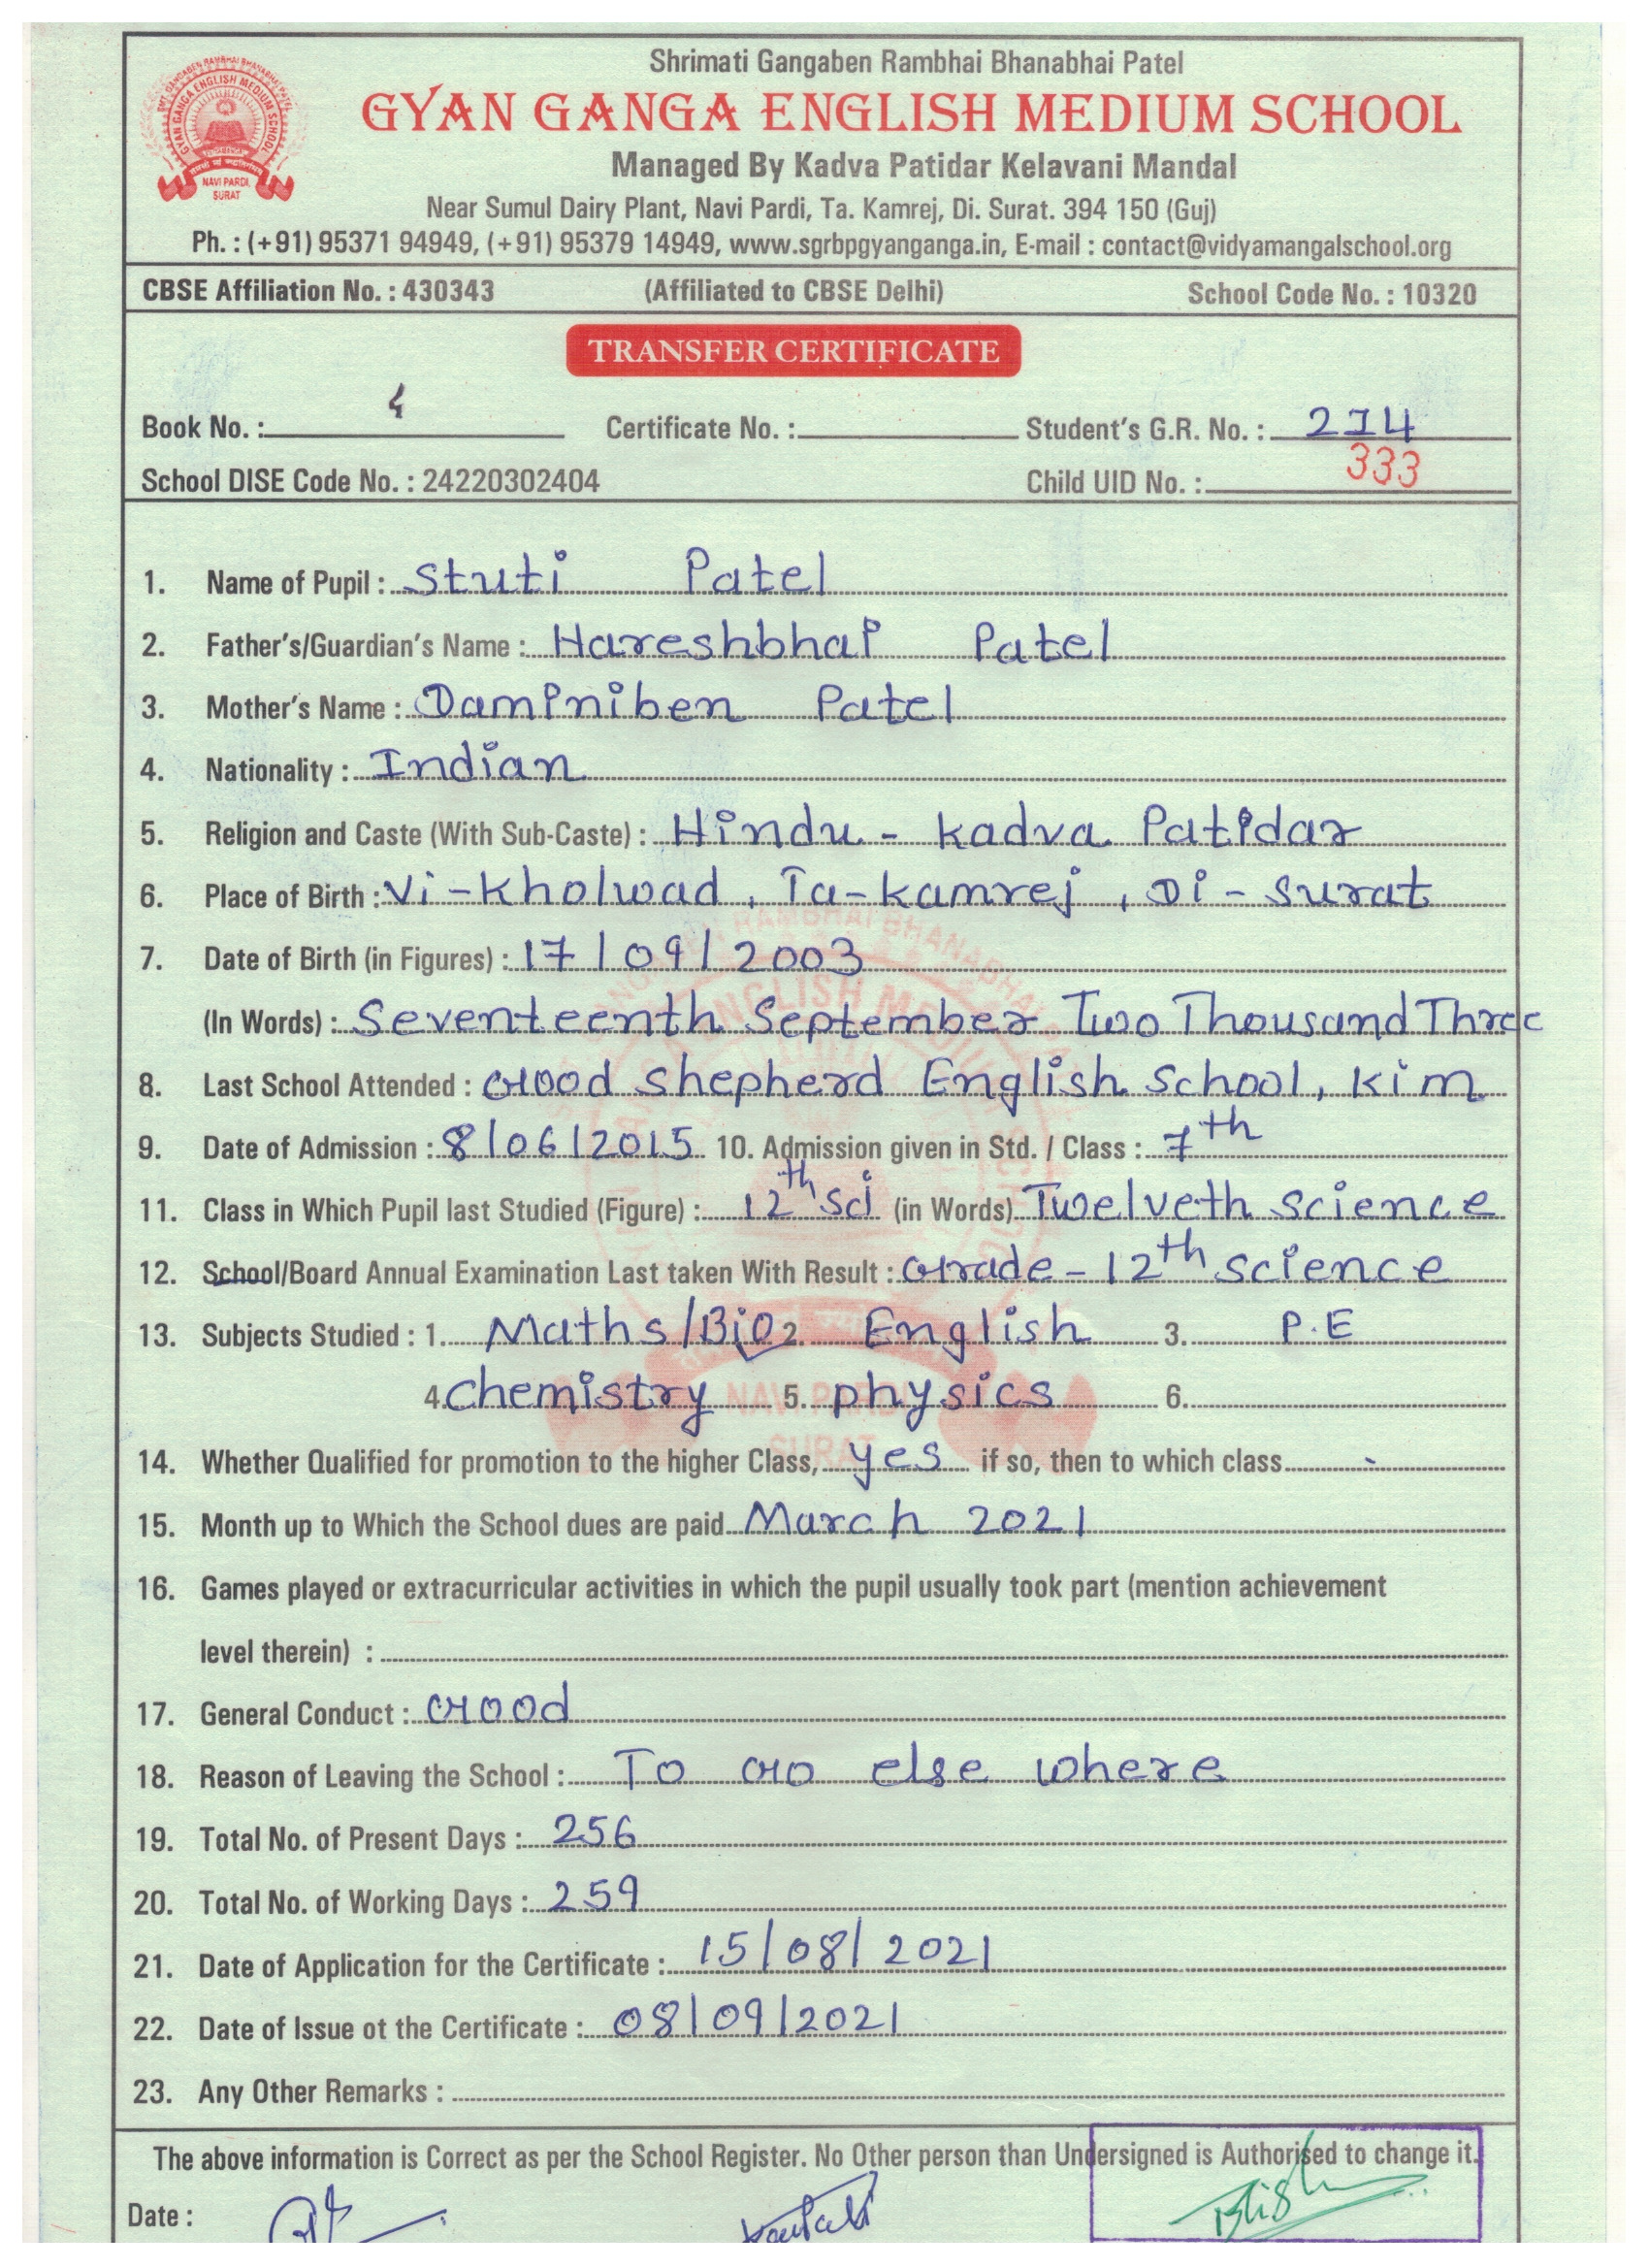 Shrimati Gangaben Rambhai Bhanabhai Patel
GYAN GANGA ENGLISH MEDIUM SCHOOL
Managed By Kadva Patidar Kelavani Mandal
Near Sumul Dairy Plant, Navi Pardi, Ta. Kamrej, Di. Surat. 394 150 (Guj)
Ph. : (+91) 95371 94949, (+91) 95379 14949, www.sgrbpgyanganga.in, E-mail : contact@vidyamangalschool.org
GYAN GANGA ENGLISH MEDIUM SCHOOL
NAVI PARDI,
SURAT
CBSE Affiliation No. : 430343 (Affiliated to CBSE Delhi) School Code No. : 10320
TRANSFER CERTIFICATE
Book No. : 4 Certificate No. : Student's G.R. No. : 214
School DISE Code No. : 24220302404 Child UID No. : 333
1. Name of Pupil : Stuti Patel
2. Father's/Guardian's Name : Hareshbhai Patel
3. Mother's Name : Daminiben Patel
4. Nationality : Indian
5. Religion and Caste (With Sub-Caste) : Hindu - Kadva Patidar
6. Place of Birth : Vi-Kholwad, Ta-Kamrej, Di-Surat
7. Date of Birth (in Figures) : 17/09/2003
(In Words) : Seventeenth September Two Thousand Three
8. Last School Attended : Good Shepherd English School, Kim
9. Date of Admission : 8/06/2015 10. Admission given in Std. / Class : 7th
11. Class in Which Pupil last Studied (Figure) : 12th Sci (in Words) Twelveth Science
12. School/Board Annual Examination Last taken With Result : Grade - 12th Science
13. Subjects Studied : 1. Maths/Bio 2. English 3. P.E
4. Chemistry 5. Physics 6.
14. Whether Qualified for promotion to the higher Class, yes if so, then to which class -
15. Month up to Which the School dues are paid March 2021
16. Games played or extracurricular activities in which the pupil usually took part (mention achievement
level therein) :
17. General Conduct : Good
18. Reason of Leaving the School : To Go else where
19. Total No. of Present Days : 256
20. Total No. of Working Days : 259
21. Date of Application for the Certificate : 15/08/2021
22. Date of Issue ot the Certificate : 08/09/2021
23. Any Other Remarks :
The above information is Correct as per the School Register. No Other person than Undersigned is Authorised to change it.
Date :